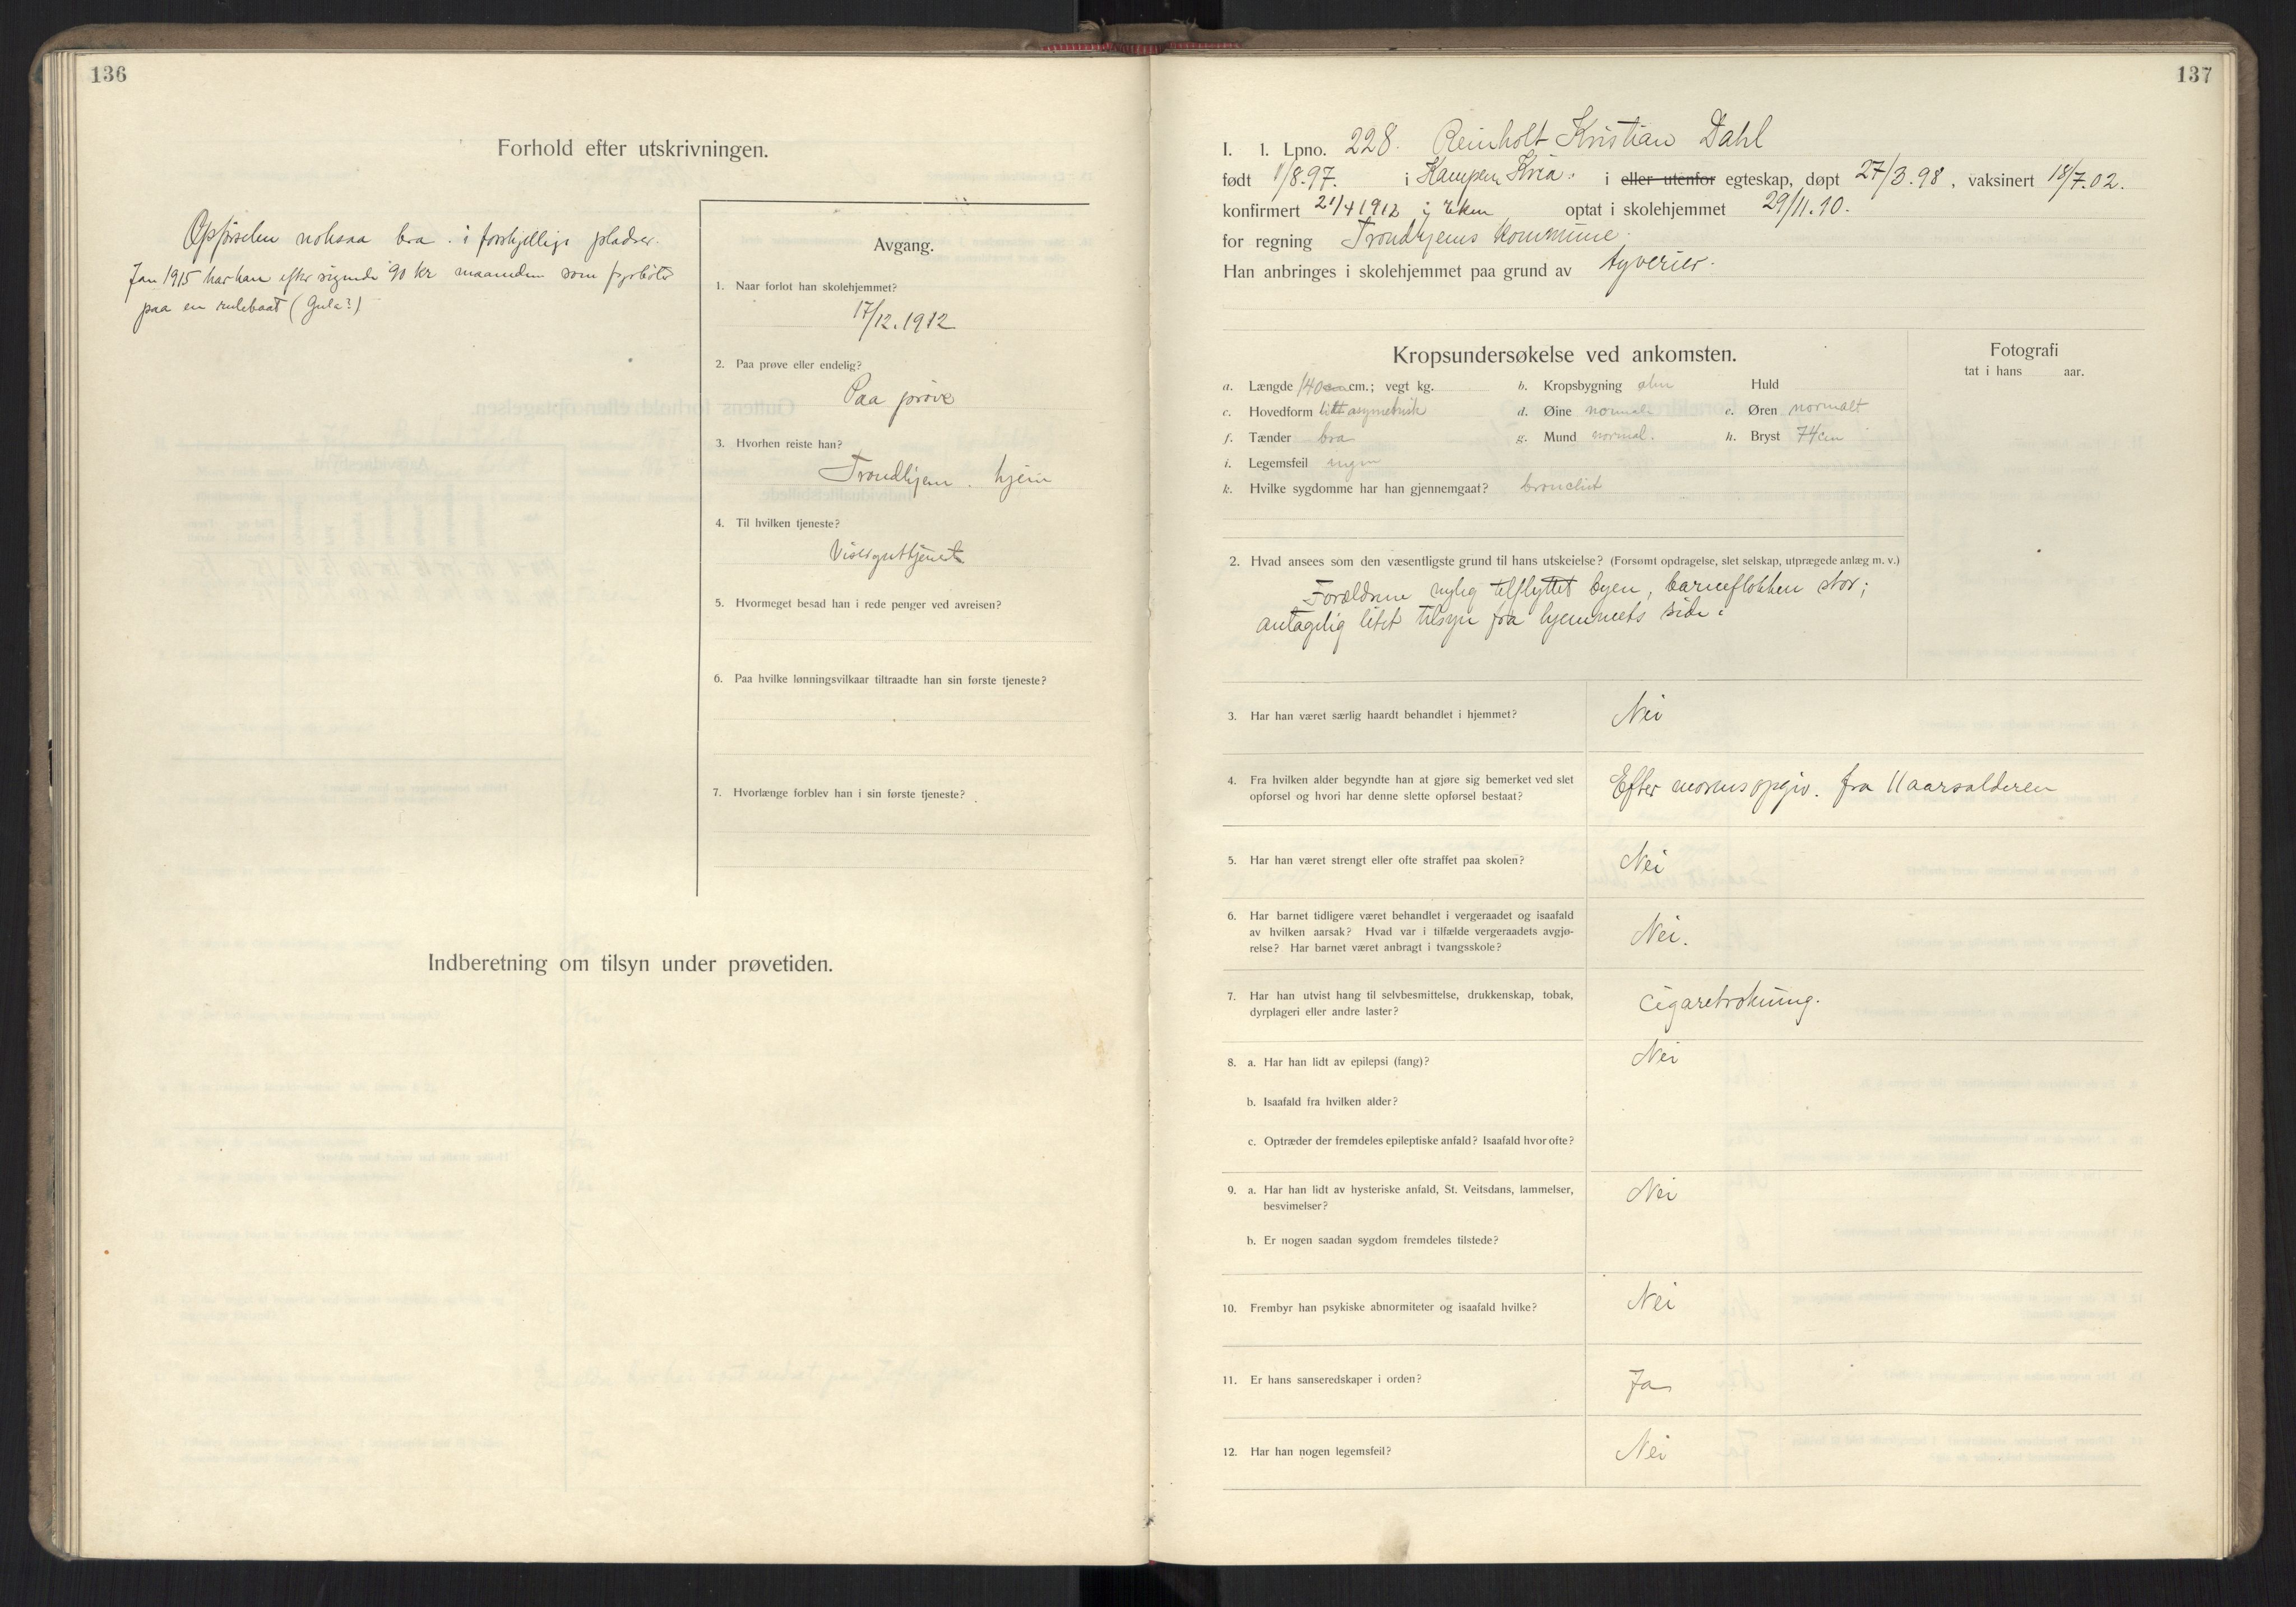 136
Forhold efter utskrivningen.
Opførselen noksaa bra i forskjellige pladser.
Jan 1915 har han efter sigende 90 kr maaneden som fyrbøter
paa en rutebaat (Gula?)
Avgang.
1. Naar forlot han skolehjemmet?
17/12.1912
2. Paa prøve eller endelig?
Paa prøve
3. Hvorhen reiste han?
Trondhjem. hjem
4. Til hvilken tjeneste?
Viserguttjeneste
5. Hvormeget besad han i rede penger ved avreisen?
6. Paa hvilke lønningsvilkaar tiltraadte han sin første tjeneste?
7. Hvorlænge forblev han i sin første tjeneste?
Indberetning om tilsyn under prøvetiden.
137
I. 1. Lpno. 228. Reinholt Kristian Dahl
født 1/8.97. i Kampen Kria. i eller utenfor egteskap, døpt 27/3.98, vaksinert 18/7.02.
konfirmert 21/4 1912 i optat i skolehjemmet 29/11.10.
for regning Trondhjems kommune.
Han anbringes i skolehjemmet paa grund av tyverier.
Kropsundersøkelse ved ankomsten.
Fotografi
tat i hans aar.
a. Længde 140 cm.; vegt kg. b. Kropsbygning alm Huld
c. Hovedform litt asymetrisk d. Øine normale e. Øren normalt
f. Tænder bra g. Mund normal. h. Bryst 74 cm
i. Legemsfeil ingen
k. Hvilke sygdomme har han gjennemgaat? bronchit
2. Hvad ansees som den væsentligste grund til hans utskeielse? (Forsømt opdragelse, slet selskap, utprægede anlæg m. v.)
Forældrene nylig tilflyttet byen, barneflokken stor;
antagelig litet tilsyn fra hjemmets side.
3. Har han været særlig haardt behandlet i hjemmet?
Nei
4. Fra hvilken alder begyndte han at gjøre sig bemerket ved slet
opførsel og hvori har denne slette opførsel bestaat?
Efter morens opgiv. fra 11 aarsalderen
5. Har han været strengt eller ofte straffet paa skolen?
Nei
6. Har barnet tidligere været behandlet i vergeraadet og isaafald
av hvilken aarsak? Hvad var i tilfælde vergeraadets avgjø-
relse? Har barnet været anbragt i tvangsskole?
Nei.
7. Har han utvist hang til selvbesmittelse, drukkenskap, tobak,
dyrplageri eller andre laster?
Cigaretrøkning.
8. a. Har han lidt av epilepsi (fang)?
Nei
b. Isaafald fra hvilken alder?
c. Optræder der fremdeles epileptiske anfald? Isaafald hvor ofte?
9. a. Har han lidt av hysteriske anfald, St. Veitsdans, lammelser,
besvimelser?
Nei
b. Er nogen saadan sygdom fremdeles tilstede?
10. Frembyr han psykiske abnormiteter og isaafald hvilke?
Nei
11. Er hans sanseredskaper i orden?
Ja
12. Har han nogen legemsfeil?
Nei